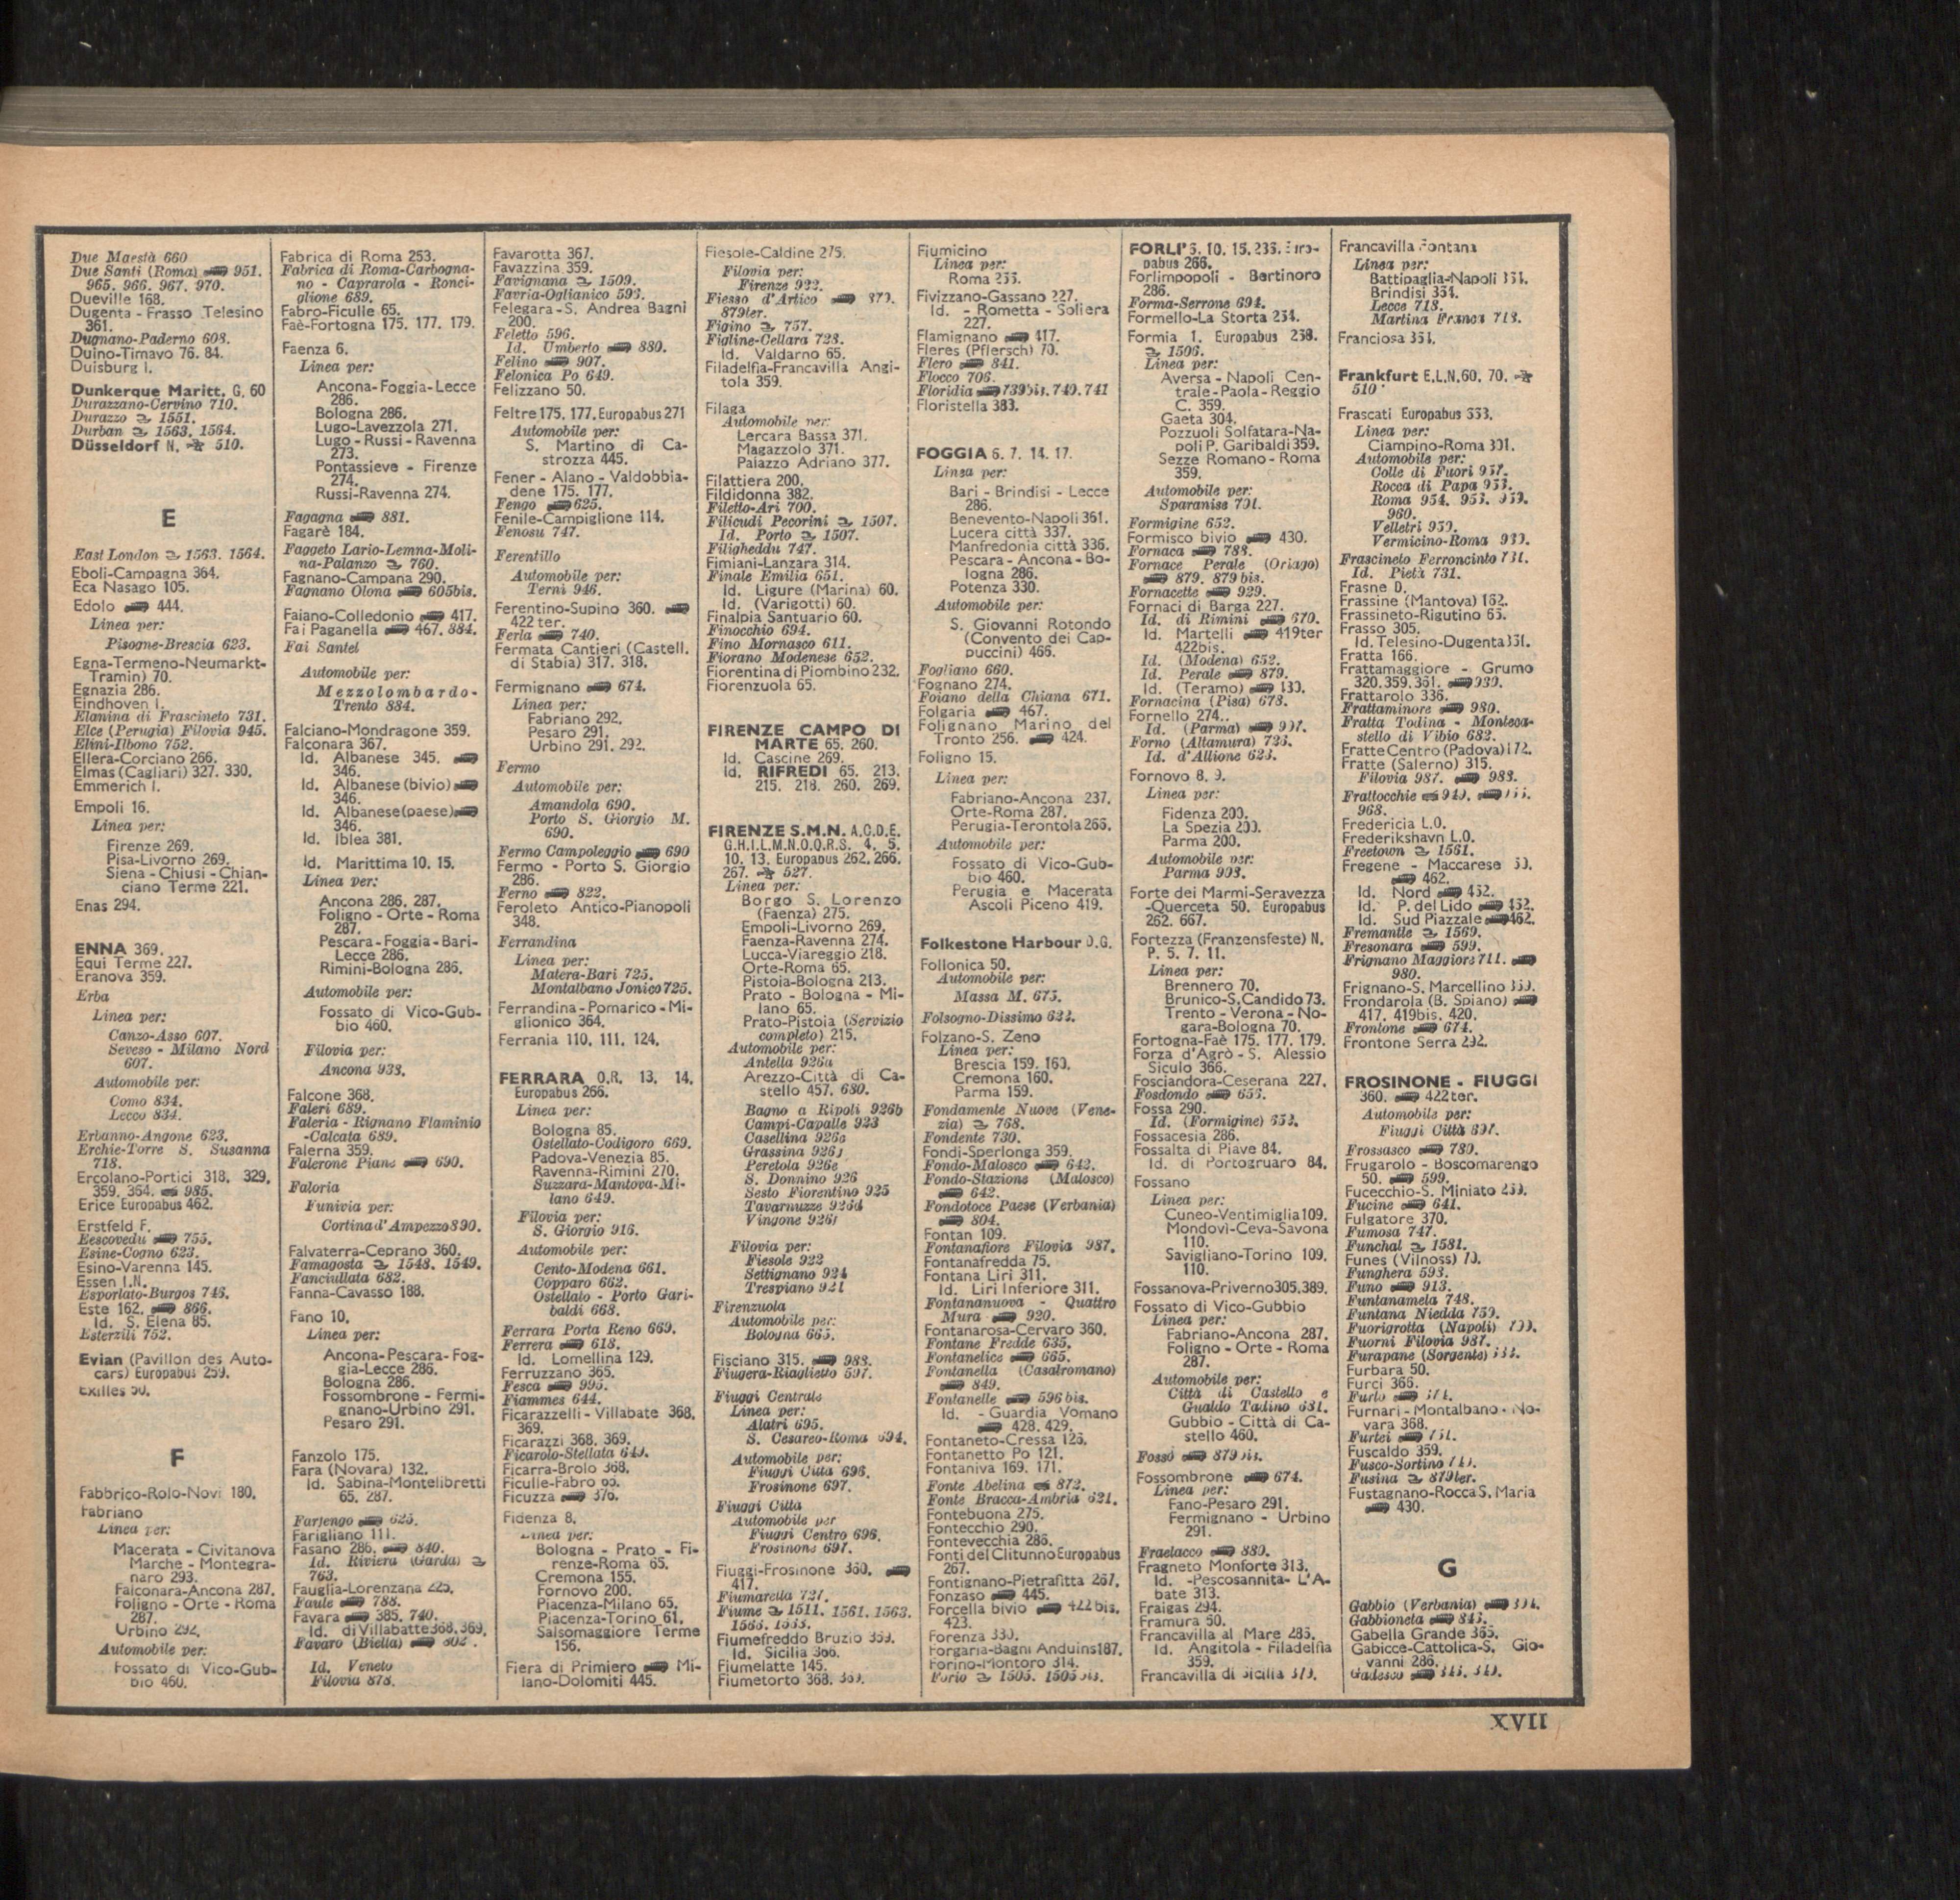 Due Maestà 660
Due Santi (Roma) 951.
965. 966. 967. 970.
Dueville 168.
Dugenta - Frasso Telesino
361.
Dugnano-Paderno 608.
Duino-Timavo 76. 84.
Duisburg I.
Dunkerque Maritt. G. 60
Durazzano-Cervino 710.
Durazzo 1551.
Durban 1563. 1564.
Düsseldorf N. 510.
E
East London 1563. 1564.
Eboli-Campagna 364.
Eca Nasago 105.
Edolo 444.
Linea per:
Pisogne-Brescia 623.
Egna-Termeno-Neumarkt-
Tramin) 70.
Egnazia 286.
Eindhoven I.
Elanina di Frascineto 731.
Elce (Perugia) Filovia 945.
Elini-Ilbono 752.
Ellera-Corciano 266.
Elmas (Cagliari) 327. 330.
Emmerich I.
Empoli 16.
Linea per:
Firenze 269.
Pisa-Livorno 269.
Siena - Chiusi - Chian-
ciano Terme 221.
Enas 294.
ENNA 369.
Equi Terme 227.
Eranova 359.
Erba
Linea per:
Canzo-Asso 607.
Seveso - Milano Nord
607.
Automobile per:
Como 834.
Lecco 834.
Erbanno-Angone 623.
Erchie-Torre S. Susanna
718.
Ercolano-Portici 318. 329.
359. 364. 985.
Erice Europabus 462.
Erstfeld F.
Eescovedu 755.
Esine-Cogno 623.
Esino-Varenna 145.
Essen I.N.
Esporlato-Burgos 746.
Este 162. 866.
Id. S. Elena 85.
Esterzili 752.
Evian (Pavillon des Auto-
cars) Europabus 259.
Exilles 50.
F
Fabbrico-Rolo-Novi 180.
Fabriano
Linea per:
Macerata - Civitanova
Marche - Montegra-
naro 293.
Falconara-Ancona 287.
Foligno - Orte - Roma
287.
Urbino 292.
Automobile per:
Fossato di Vico-Gub-
bio 460.
Fabrica di Roma 253.
Fabrica di Roma-Carbogna-
no - Caprarola - Ronci-
glione 689.
Fabro-Ficulle 65.
Faè-Fortogna 175. 177. 179.
Faenza 6.
Linea per:
Ancona-Foggia-Lecce
286.
Bologna 286.
Lugo-Lavezzola 271.
Lugo - Russi - Ravenna
273.
Pontassieve - Firenze
274.
Russi-Ravenna 274.
Fagagna 881.
Fagarè 184.
Faggeto Lario-Lemna-Moli-
na-Palanzo 760.
Fagnano-Campana 290.
Fagnano Olona 605bis.
Faiano-Colledonio 417.
Fai Paganella 467. 884.
Fai Santel
Automobile per:
Mezzolombardo-
Trento 884.
Falciano-Mondragone 359.
Falconara 367.
Id. Albanese 345.
346.
Id. Albanese (bivio)
346.
Id. Albanese (paese)
346.
Id. Iblea 381.
Id. Marittima 10. 15.
Linea per:
Ancona 286. 287.
Foligno - Orte - Roma
287.
Pescara - Foggia - Bari-
Lecce 286.
Rimini-Bologna 286.
Automobile per:
Fossato di Vico-Gub-
bio 460.
Filovia per:
Ancona 938.
Falcone 368.
Faleri 689.
Faleria - Rignano Flaminio
-Calcata 689.
Falerna 359.
Falerone Piane 690.
Faloria
Funivia per:
Cortina d'Ampezzo 890.
Falvaterra-Ceprano 360.
Famagosta 1548. 1549.
Fanciullata 682.
Fanna-Cavasso 188.
Fano 10.
Linea per:
Ancona-Pescara-Fog-
gia-Lecce 286.
Bologna 286.
Fossombrone - Fermi-
gnano-Urbino 291.
Pesaro 291.
Fanzolo 175.
Fara (Novara) 132.
Id. Sabina-Montelibretti
65. 287.
Farfengo 625.
Farigliano 111.
Fasano 286. 840.
Id. Riviera (Garda)
763.
Fauglia-Lorenzana 225.
Faule 788.
Favara 385. 740.
Id. di Villabatte 368.369.
Favaro (Biella) 802.
Id. Veneto
Filovia 878.
Favarotta 367.
Favazzina 359.
Favignana 1509.
Favria-Oglianico 596.
Felegara - S. Andrea Bagni
200.
Feletto 596.
Id. Umberto 880.
Felino 907.
Felonica Po 649.
Felizzano 50.
Feltre 175. 177. Europabus 271
Automobile per:
S. Martino di Ca-
strozza 445.
Fener - Alano - Valdobbia-
dene 175. 177.
Fengo 625.
Fenile-Campiglione 114.
Fenosu 747.
Ferentillo
Automobile per:
Terni 946.
Ferentino-Supino 360.
422 ter.
Ferla 740.
Fermata Cantieri (Castell.
di Stabia) 317. 318.
Fermignano 674.
Linea per:
Fabriano 292.
Pesaro 291.
Urbino 291. 292.
Fermo
Automobile per:
Amandola 690.
Porto S. Giorgio M.
690.
Fermo Campoleggio 690
Fermo - Porto S. Giorgio
286.
Ferno 822.
Feroleto Antico-Pianopoli
348.
Ferrandina
Linea per:
Matera-Bari 725.
Montalbano Jonico 725.
Ferrandina - Pomarico - Mi-
glionico 364.
Ferrania 110. 111. 124.
FERRARA O.R. 13. 14.
Europabus 266.
Linea per:
Bologna 85.
Ostellato-Codigoro 669.
Padova-Venezia 85.
Ravenna-Rimini 270.
Suzzara-Mantova-Mi-
lano 649.
Filovia per:
S. Giorgio 916.
Automobile per:
Cento-Modena 661.
Copparo 662.
Ostellato - Porto Gari-
baldi 668.
Ferrara Porta Reno 669.
Ferrera 618.
Id. Lomellina 129.
Ferruzzano 365.
Fesca 995.
Fiammes 644.
Ficarazzelli - Villabate 368.
369.
Ficarazzi 368. 369.
Ficarolo-Stellata 649.
Ficarra-Brolo 368.
Ficulle-Fabro 65.
Ficuzza 376.
Fidenza 8.
Linea per:
Bologna - Prato - Fi-
renze-Roma 65.
Cremona 155.
Fornovo 200.
Piacenza-Milano 65.
Piacenza-Torino 61.
Salsomaggiore Terme
156.
Fiera di Primiero Mi-
lano-Dolomiti 445.
Fiesole-Caldine 275.
Filovia per:
Firenze 922.
Fiesso d'Artico 879.
879ter.
Figino 757.
Figline-Cellara 728.
Id. Valdarno 65.
Filadelfia-Francavilla Angi-
tola 359.
Filaga
Automobile per:
Lercara Bassa 371.
Magazzolo 371.
Palazzo Adriano 377.
Filattiera 200.
Fildidonna 382.
Filetto-Ari 700.
Filicudi Pecorini 1507.
Id. Porto 1507.
Filigheddu 747.
Fimiani-Lanzara 314.
Finale Emilia 651.
Id. Ligure (Marina) 60.
Id. (Varigotti) 60.
Finalpia Santuario 60.
Finocchio 694.
Fino Mornasco 611.
Fiorano Modenese 652.
Fiorentina di Piombino 232.
Fiorenzuola 65.
FIRENZE CAMPO DI
MARTE 65. 260.
Id. Cascine 269.
Id. RIFREDI 65. 213.
215. 218. 260. 269.
FIRENZE S.M.N. A.C.D.E.
G.H.I.L.M.N.O.Q.R.S. 4. 5.
10. 13. Europabus 262. 266.
267. 527.
Linea per:
Borgo S. Lorenzo
(Faenza) 275.
Empoli-Livorno 269.
Faenza-Ravenna 274.
Lucca-Viareggio 218.
Orte-Roma 65.
Pistoia-Bologna 213.
Prato - Bologna - Mi-
lano 65.
Prato-Pistoia (Servizio
completo) 215.
Automobile per:
Antella 926a
Arezzo-Città di Ca-
stello 457. 680.
Bagno a Ripoli 926b
Campi-Capalle 923
Casellina 926c
Grassina 926j
Peretola 926e
S. Donnino 926
Sesto Fiorentino 925
Tavarnuzze 926d
Vingone 926i
Filovia per:
Fiesole 922
Settignano 924
Trespiano 921
Firenzuola
Automobile per:
Bologna 665.
Fisciano 315. 988.
Fiugera-Riaglietto 597.
Fiuggi Centrale
Linea per:
Alatri 695.
S. Cesareo-Roma 694.
Automobile per:
Fiuggi Città 696.
Frosinone 697.
Fiuggi Città
Automobile per
Fiuggi Centro 696.
Frosinone 697.
Fiuggi-Frosinone 360.
417.
Fiumarella 727.
Fiume 1511. 1561. 1563.
Fiumefreddo Bruzio 359.
Id. Sicilia 366.
Fiumelatte 145.
Fiumetorto 368. 369.
Fiumicino
Linea per:
Roma 255.
Fivizzano-Gassano 227.
Id. - Rometta - Soliera
227.
Flamignano 417.
Fleres (Pflersch) 70.
Flero 841.
Flocco 706.
Floridia 739bis. 740. 741
Floristella 383.
FOGGIA 6. 7. 14. 17.
Linea per:
Bari - Brindisi - Lecce
286.
Benevento-Napoli 361.
Lucera città 337.
Manfredonia città 336.
Pescara - Ancona - Bo-
logna 286.
Potenza 330.
Automobile per:
S. Giovanni Rotondo
(Convento dei Cap-
puccini) 466.
Fogliano 660.
Fognano 274.
Foiano della Chiana 671.
Folgaria 467.
Folignano Marino del
Tronto 256. 424.
Foligno 15.
Linea per:
Fabriano-Ancona 237.
Orte-Roma 287.
Perugia-Terontola 266.
Automobile per:
Fossato di Vico-Gub-
bio 460.
Perugia e Macerata
Ascoli Piceno 419.
Folkestone Harbour D.G.
Follonica 50.
Automobile per:
Massa M. 675.
Folsogno-Dissimo 622.
Folzano-S. Zeno
Linea per:
Brescia 159. 160.
Cremona 160.
Parma 159.
Fondamente Nuove (Vene-
zia) 768.
Fondente 730.
Fondi-Sperlonga 359.
Fondo-Malosco 642.
Fondo-Stazione (Malosco)
642.
Fondotoce Paese (Verbania)
804.
Fontan 109.
Fontanafiore Filovia 987.
Fontanafredda 75.
Fontana Liri 311.
Id. Liri Inferiore 311.
Fontananuova - Quattro
Mura 920.
Fontanarosa-Cervaro 360.
Fontane Fredde 635.
Fontanelice 665.
Fontanella (Casalromano)
849.
Fontanelle 596 bis.
Id. - Guardia Vomano
428. 429.
Fontaneto-Cressa 126.
Fontanetto Po 121.
Fontaniva 169. 171.
Fonte Abelina 872.
Fonte Bracca-Ambria 621.
Fontebuona 275.
Fontecchio 290.
Fontevecchia 286.
Fonti del Clitunno Europabus
267.
Fontignano-Pietrafitta 267.
Fonzaso 445.
Forcella bivio 422 bis.
423.
Forenza 330.
Forgaria-Bagni Anduins 187.
Forino-Montoro 314.
Forio 1505. 1505 bis.
FORLI' 6. 10. 15. 286. Euro-
pabus 266.
Forlimpopoli - Bertinoro
286.
Forma-Serrone 694.
Formello-La Storta 254.
Formia 1. Europabus 258.
1506.
Linea per:
Aversa - Napoli Cen-
trale - Paola - Reggio
C. 359.
Gaeta 304.
Pozzuoli Solfatara-Na-
poli P. Garibaldi 359.
Sezze Romano - Roma
359.
Automobile per:
Sparanise 701.
Formigine 652.
Formisco bivio 430.
Fornaca 788.
Fornace Perale (Oriago)
879. 879 bis.
Fornacette 929.
Fornaci di Barga 227.
Id. di Rimini 670.
Id. Martelli 419ter
422bis.
Id. (Modena) 652.
Id. Perale 879.
Id. (Teramo) 430.
Fornacina (Pisa) 678.
Fornello 274..
Id. (Parma) 907.
Forno (Altamura) 726.
Id. d'Allione 623.
Fornovo 8. 9.
Linea per:
Fidenza 200.
La Spezia 200.
Parma 200.
Automobile per:
Parma 908.
Forte dei Marmi-Seravezza
-Querceta 50. Europabus
262. 667.
Fortezza (Franzensfeste) N.
P. 5. 7. 11.
Linea per:
Brennero 70.
Brunico-S.Candido 73.
Trento - Verona - No-
gara-Bologna 70.
Fortogna-Faè 175. 177. 179.
Forza d'Agrò - S. Alessio
Siculo 366.
Fosciandora-Ceserana 227.
Fosdondo 656.
Fossa 290.
Id. (Formigine) 652.
Fossacesia 286.
Fossalta di Piave 84.
Id. di Portogruaro 84.
Fossano
Linea per:
Cuneo-Ventimiglia 109.
Mondovì-Ceva-Savona
110.
Savigliano-Torino 109.
110.
Fossanova-Priverno 305.389.
Fossato di Vico-Gubbio
Linea per:
Fabriano-Ancona 287.
Foligno - Orte - Roma
287.
Automobile per:
Città di Castello e
Gualdo Tadino 681.
Gubbio - Città di Ca-
stello 460.
Fossò 879 bis.
Fossombrone 674.
Linea per:
Fano-Pesaro 291.
Fermignano - Urbino
291.
Fraelacco 880.
Fragneto Monforte 313.
Id. -Pescosannita- L'A-
bate 313.
Fraigas 294.
Framura 50.
Francavilla al Mare 286.
Id. Angitola - Filadelfia
359.
Francavilla di Sicilia 379.
Francavilla Fontana
Linea per:
Battipaglia-Napoli 354.
Brindisi 354.
Lecce 718.
Martina Franca 718.
Franciosa 354.
Frankfurt E.L.N.60. 70.
510
Frascati Europabus 353.
Linea per:
Ciampino-Roma 301.
Automobile per:
Colle di Fuori 957.
Rocca di Papa 953.
Roma 954. 953. 959.
960.
Velletri 959.
Vermicino-Roma 939.
Frascineto Ferroncinto 731.
Id. Pietà 731.
Frasne D.
Frassine (Mantova) 162.
Frassineto-Rigutino 65.
Frasso 305.
Id. Telesino-Dugenta 361.
Fratta 166.
Frattamaggiore - Grumo
320.359.361. 980.
Frattarolo 336.
Frattaminore 980.
Fratta Todina - Monteca-
stello di Vibio 682.
Fratte Centro (Padova) 172.
Fratte (Salerno) 315.
Filovia 987. 988.
Frattocchie 949.
968.
Fredericia L.O.
Frederikshavn L.O.
Freetown 1561.
Fregene - Maccarese 50.
462.
Id. Nord 462.
Id. P. del Lido 462.
Id. Sud Piazzale 462.
Fremantle 1569.
Fresonara 599.
Frignano Maggiore 711.
980.
Frignano-S. Marcellino 359.
Frondarola (B. Spiano)
417. 419bis. 420.
Frontone 674.
Frontone Serra 292.
FROSINONE - FIUGGI
360. 422ter.
Automobile per:
Fiuggi Città 697.
Frossasco 789.
Frugarolo - Boscomarengo
50. 599.
Fucecchio-S. Miniato 269.
Fucine 641.
Fulgatore 370.
Fumosa 747.
Funchal 1581.
Funes (Vilnoss) 70.
Funghera 593.
Funo 913.
Funtanamela 748.
Funtana Niedda 750.
Fuorigrotta (Napoli)
Fuorni Filovia 987.
Furapane (Sorgente)
Furbara 50.
Furci 366.
Furlo 674.
Furnari - Montalbano - No-
vara 368.
Furtei 751.
Fuscaldo 359.
Fusco-Sortino 743.
Fusina 879ter.
Fustagnano-Rocca S. Maria
430.
G
Gabbio (Verbania) 804.
Gabbioneta 845.
Gabella Grande 365.
Gabicce-Cattolica-S. Gio-
vanni 286.
Gadesco 846. 849.
XVII